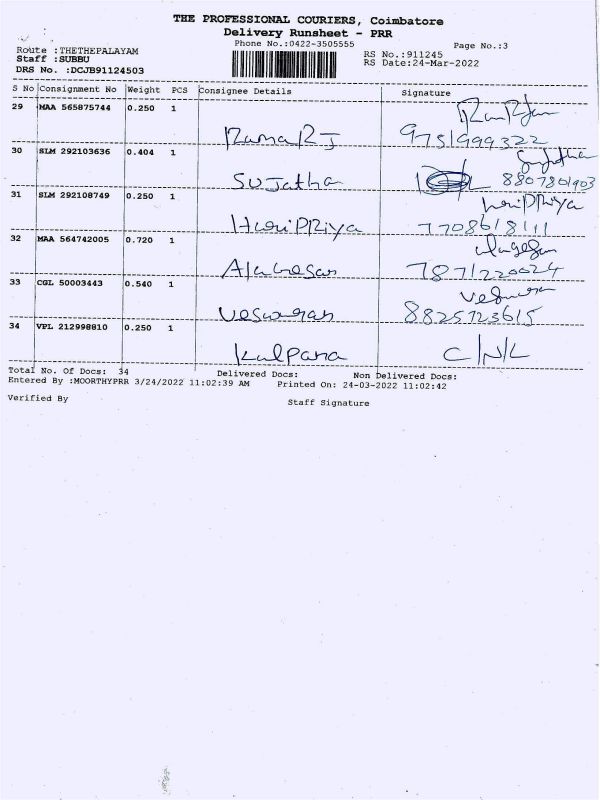 THE PROFESSIONAL COURIERS, Coimbatore
Delivery Runsheet - PRR
Phone No.:0422-3505555 Page No.:3
Route :THETHEPALAYAM RS No.:911245
Staff :SUBBU RS Date:24-Mar-2022
DRS No. :DCJB91124503
S No Consignment No Weight PCS Consignee Details Signature
29 MAA 565875744 0.250 1
Rama R J 9751999322
30 SLM 292103636 0.404 1
Sujatha 8807801903
31 SLM 292108749 0.250 1 haripRiya
HariPRiya 7708618111
32 MAA 564742005 0.720 1
7871220024
33 CGL 50003443 0.540 1
8825723615
34 VPL 212998810 0.250 1
Kalpana C/N/L
Total No. Of Docs: 34 Delivered Docs: Non Delivered Docs:
Entered By :MOORTHYPRR 3/24/2022 11:02:39 AM Printed On: 24-03-2022 11:02:42
Verified By Staff Signature